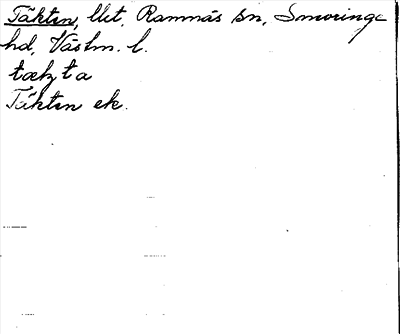 Täkten, llet, Ramnäs sn, Snevringe
hd, Västm. l.
tækta
Täkten ek.